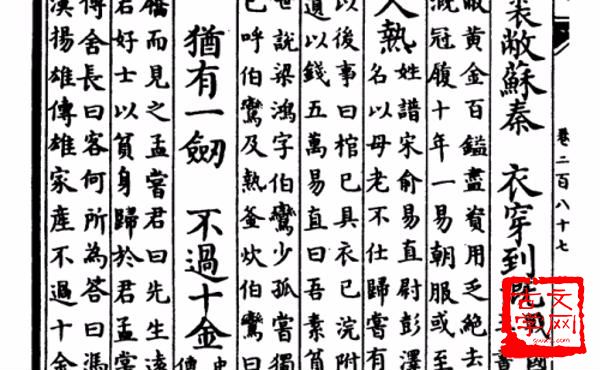 卷二百八十七
裘敝蘇秦 衣穿到溉 國
敝黃金百鎰盡資用乏絕去
溉冠履十年一易朝服或至
人熟 姓譜宋俞易直尉彭澤
名以母老不仕歸嘗有
以後事曰棺已具衣已浣附
遺以錢五萬易直曰吾素貧
世說梁鴻字伯鸞少孤嘗獨
已呼伯鸞及熱釜炊伯鸞曰
猶有一劒 不過十金 史
傳
屩而見之孟嘗君曰先生遠
君好士以貧身歸於君孟嘗
傳舍長曰客何所為答曰馮
漢揚雄傳雄家產不過十金
文网